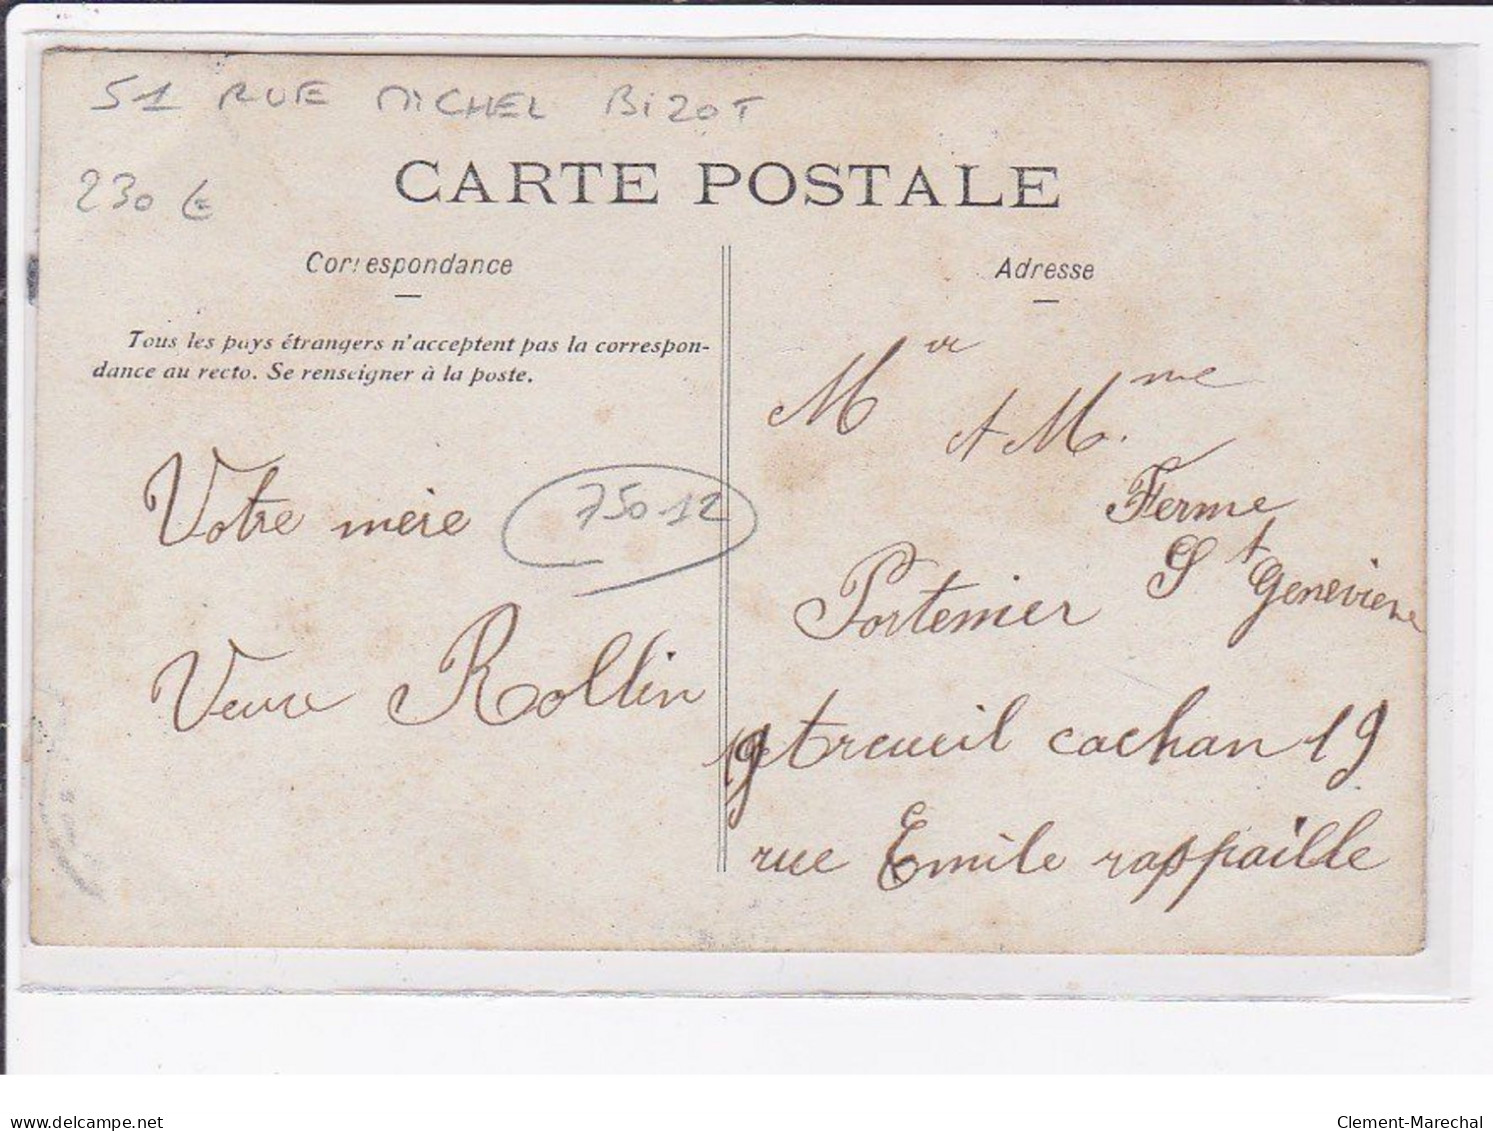 51 RUE MICHEL BIZOT
230 €
CARTE POSTALE
Correspondance
Tous les pays étrangers n'acceptent pas la correspon-
dance au recto. Se renseigner à la poste.
Votre mère
75012
Veuve Rollin
Adresse
Mr
et Mme
Ferme
St
Genevieve
Portenier
Arcueil cachan 19
rue Emile raspaille
delcampe.net
Clement-Marechal